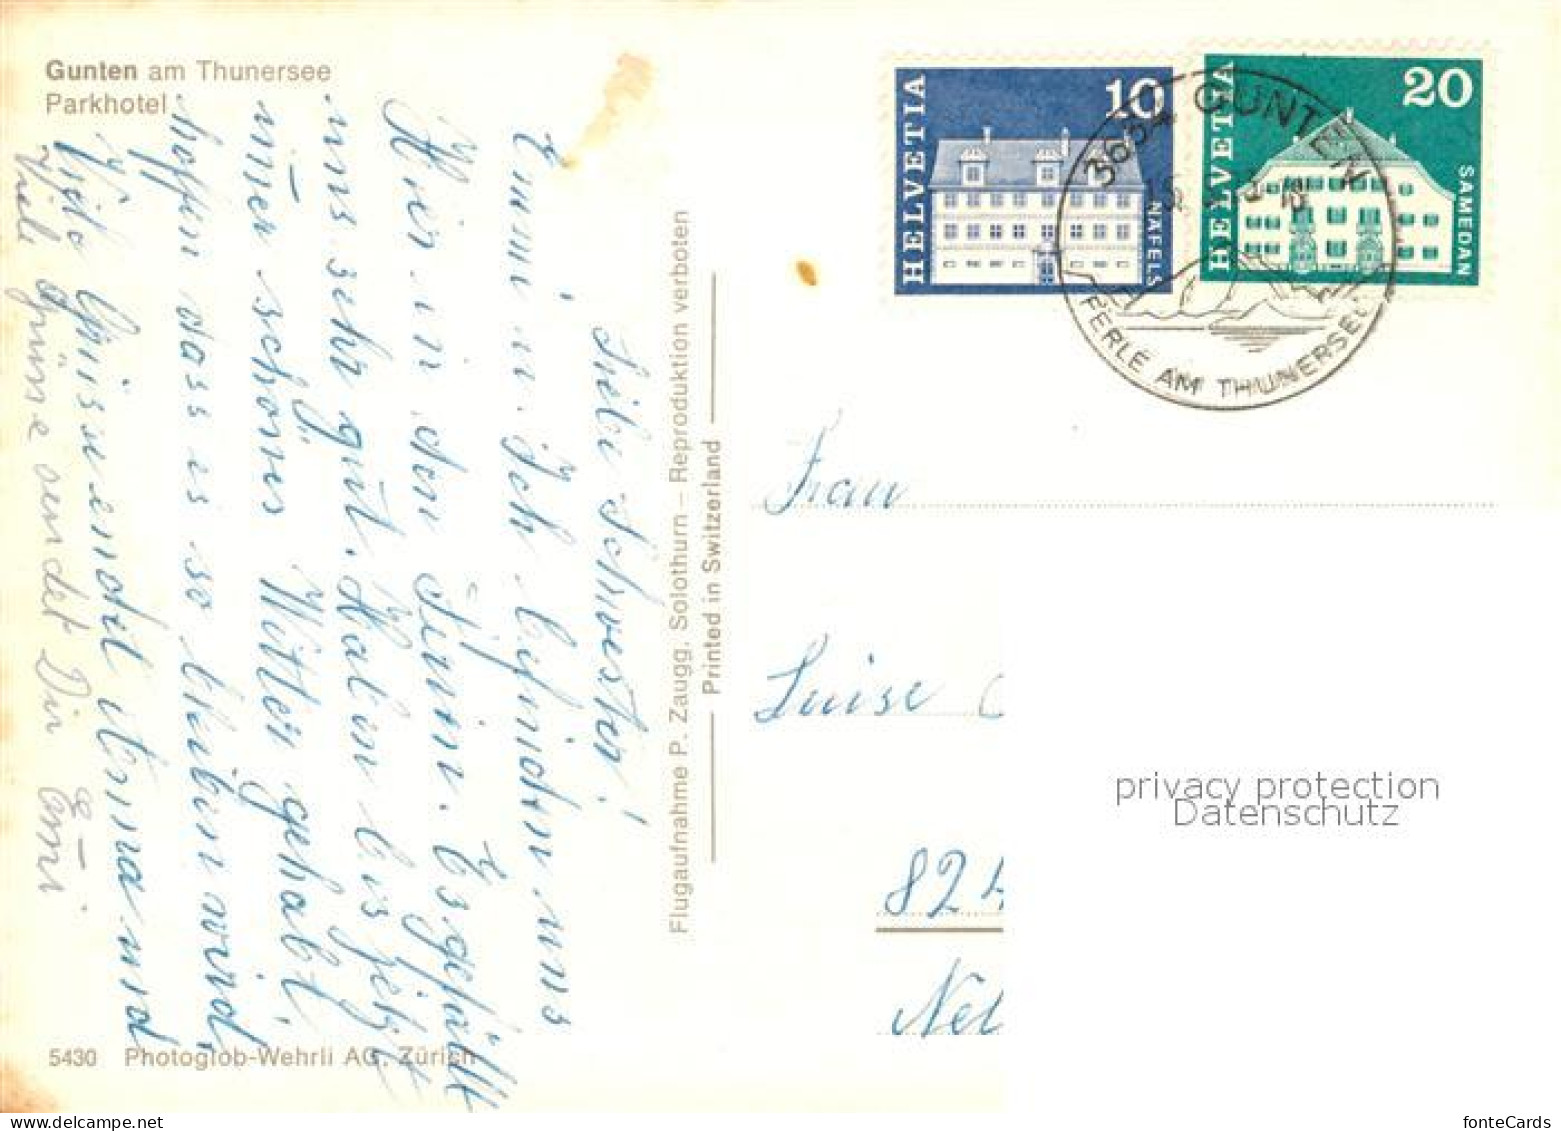 Gunten am Thunersee
Parkhotel
HELVETIA
10
NÄFELS
HELVETIA
20
SAMEDAN
3654 GUNTEN
PERLE AM THUNERSEE
Liebe Schwester!
Emmi u. Ich befinden uns
Hier in den Ferien. Es gefällt
uns sehr gut. Haben bis jetzt
immer schönes Wetter gehabt,
hoffen dass es so bleiben wird,
Viele Grüsse endet Hermann
Viele Grüsse sendet Dir Emmi
Flugaufnahme P. Zaugg, Solothurn – Reproduktion verboten
Printed in Switzerland
Frau
Luise
824
Net
5430 Photoglob-Wehrli AG, Zürich
privacy protection
Datenschutz
fonteCards